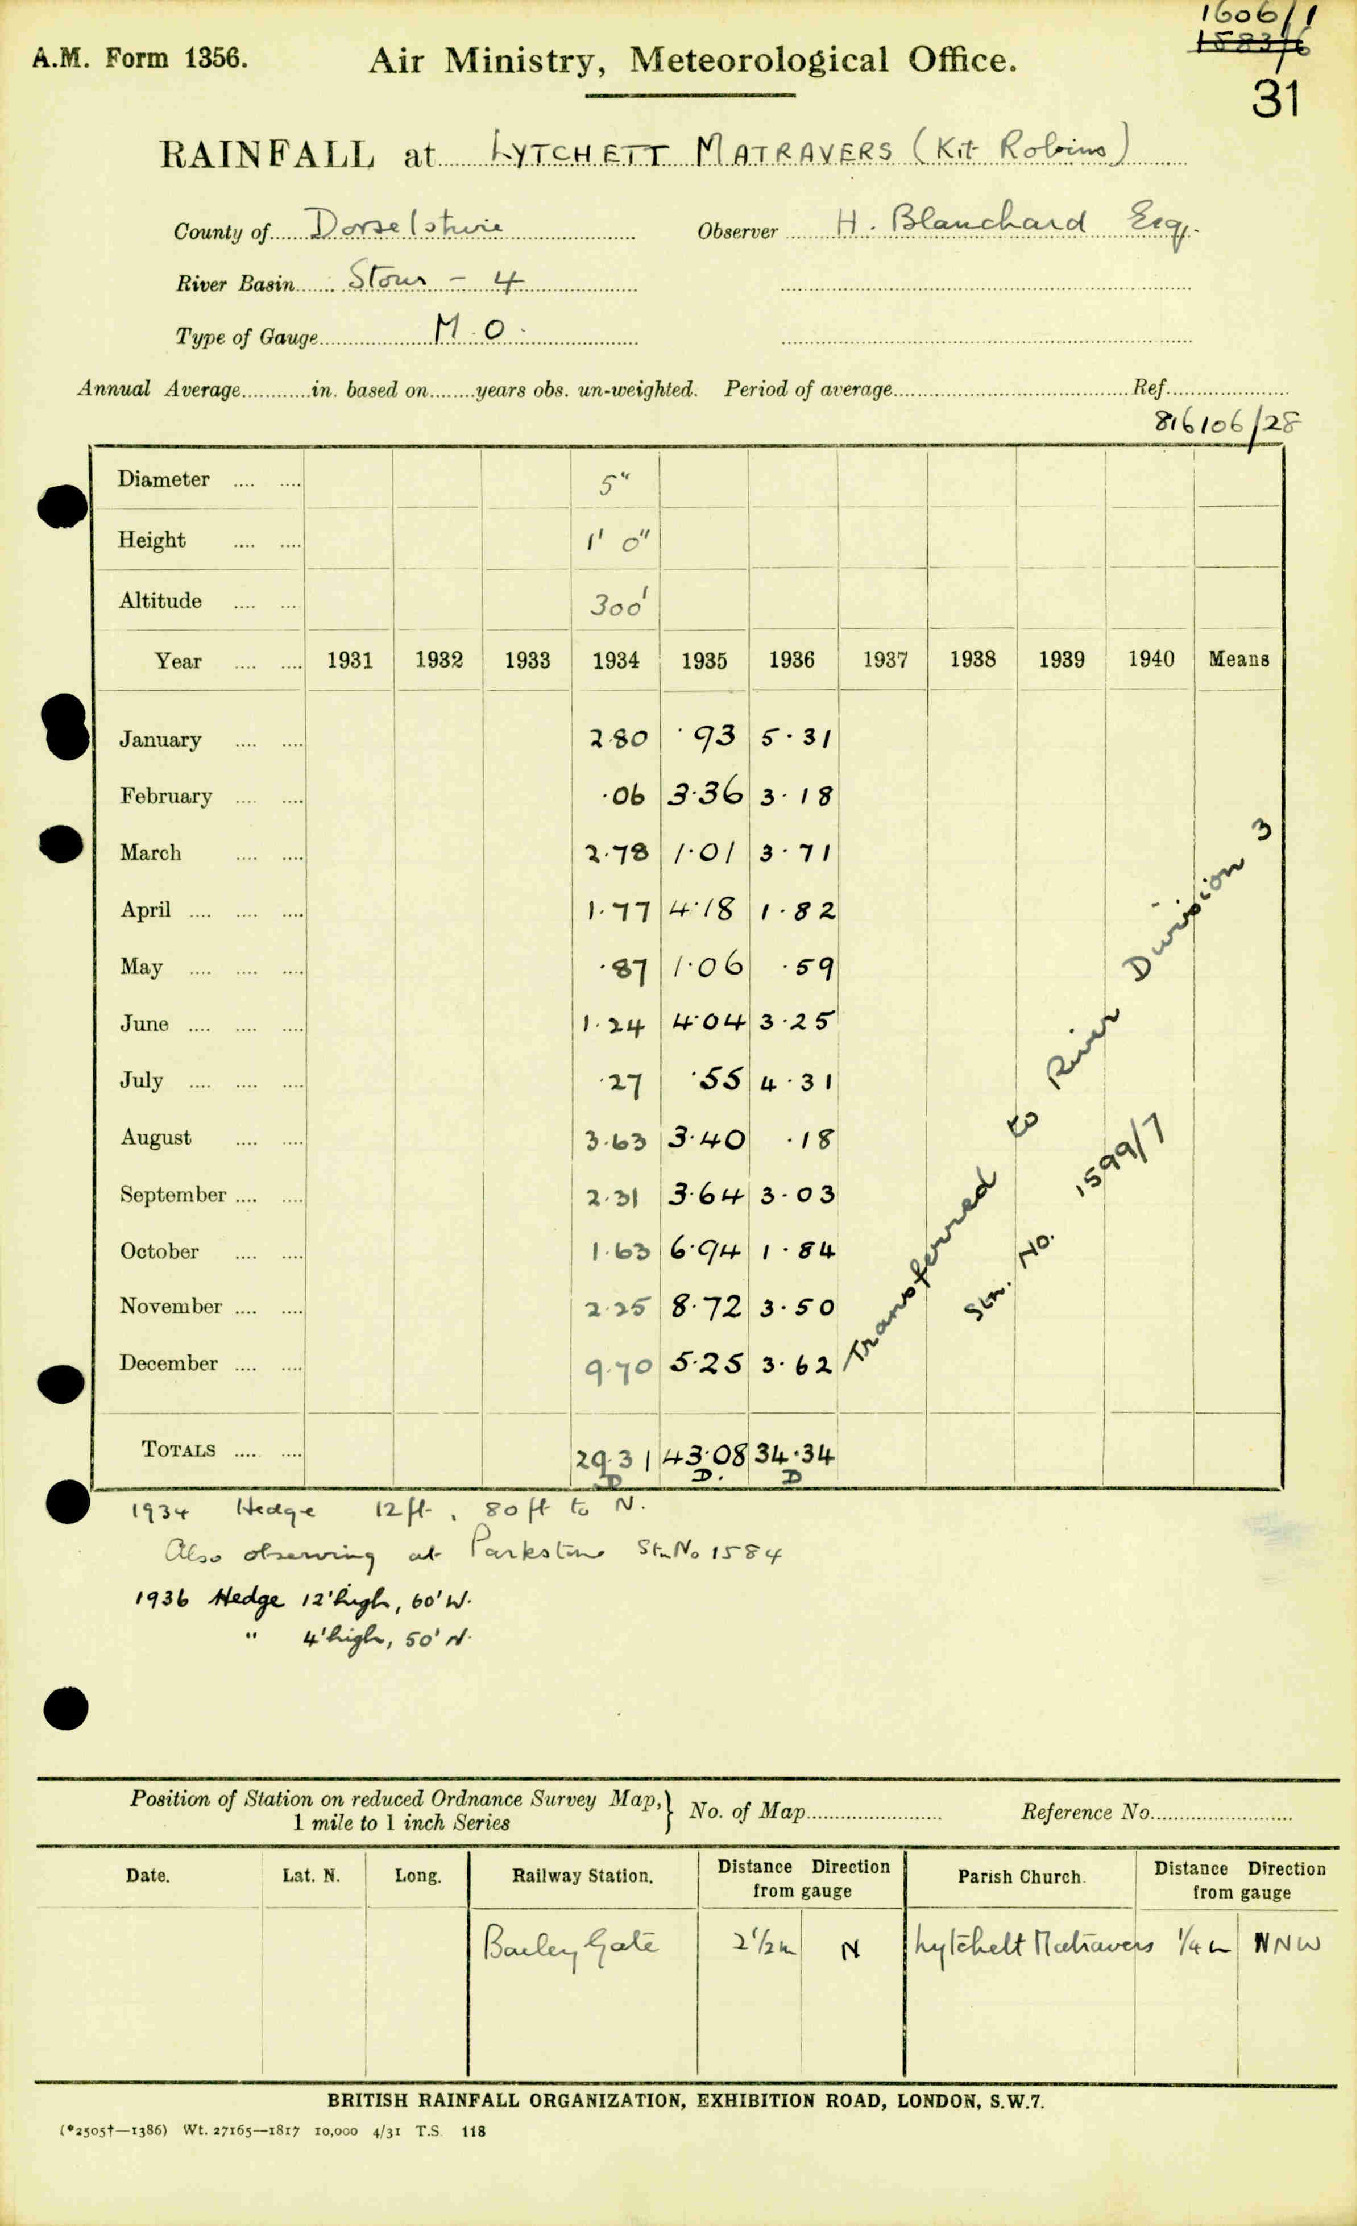 1606/1
A.M. Form 1356. Air Ministry, Meteorological Office. 1583/6
31
RAINFALL at LYTCHETT MATRAVERS (Kit Robins)
County of Dorsetshire Observer H. Blanchard Esq.
River Basin Stour - 4
Type of Gauge M.O.
Annual Average in. based on years obs. un-weighted. Period of average Ref.
816106/28
Diameter 5"
Height 1' 0"
Altitude 300'
Year 1931 1932 1933 1934 1935 1936 1937 1938 1939 1940 Means
January 2.80 .93 5.31
February .06 3.36 3.18
March 2.78 1.01 3.71
April 1.77 4.18 1.82
May .87 1.06 .59
June 1.24 4.04 3.25
July .27 .55 4.31
August 3.63 3.40 .18
September 2.31 3.64 3.03
October 1.63 6.94 1.84
November 2.25 8.72 3.50
December 9.70 5.25 3.62
TOTALS 29.31 43.08 34.34
D D. D
Transferred to River Division 3
Stn. No. 1599/7
1934 Hedge 12ft, 80ft to N.
Also observing at Parkstone Stn No 1584
1936 Hedge 12' high, 60' W.
" 4' high, 50' N.
Position of Station on reduced Ordnance Survey Map, } No. of Map Reference No.
1 mile to 1 inch Series
Date. Lat. N. Long. Railway Station. Distance Direction from gauge Parish Church. Distance Direction from gauge
Bailey Gate 2 1/2 m N Lytchett Matravers 1/4 m NNW
BRITISH RAINFALL ORGANIZATION, EXHIBITION ROAD, LONDON, S.W.7.
(*2505†—1386) Wt. 27165—1817 10,000 4/31 T.S. 118